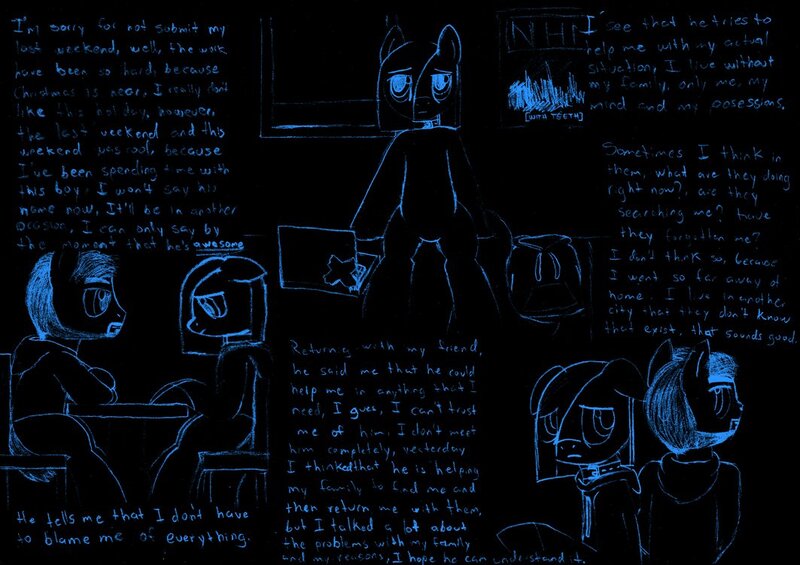 I'm sorry for not submit my
last weekend, well, the work
have been so hard, because
Christmas is near, I really don't
like this holiday, however,
the last weekend and this
weekend was cool, because
I've been spending time with
this boy. I won't say his
name now, It'll be in another
occasion, I can only say by
the moment that he's awesome
NHN
[WITH TEETH]
I see that he tries to
help me with my actual
situation, I live without
my family, only me, my
mind and my posessions.
Sometimes I think in
them, what are they doing
right now?, are they
searching me? have
they forgotten me?
I don't think so, because
I went so far away of
home. I live in another
city that they don't know
that exist, that sounds good.
He tells me that I don't have
to blame me of everything.
Returning with my friend,
he said me that he could
help me in anything that I
need, I guess, I can't trust
me of him, I don't meet
him completely, yesterday
I thinked that he is helping
my family to find me and
then return me with them,
but I talked a lot about
the problems with my family
and my reasons, I hope he can understand it.